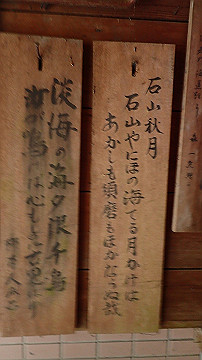 石山秋月
石山やにほの海てる月かけは
あかしも須磨もほかならぬ哉
淡海の海夕浪千鳥
汝が鳴けば心もしのに